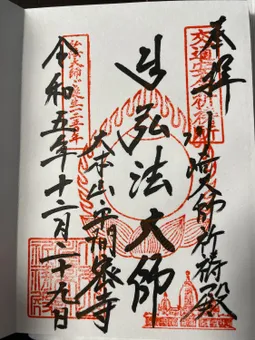 奉拝
川崎大師祈祷殿
交通安全祈祷殿
弘法大師
大本山平間寺
令和五年十二月二十九日